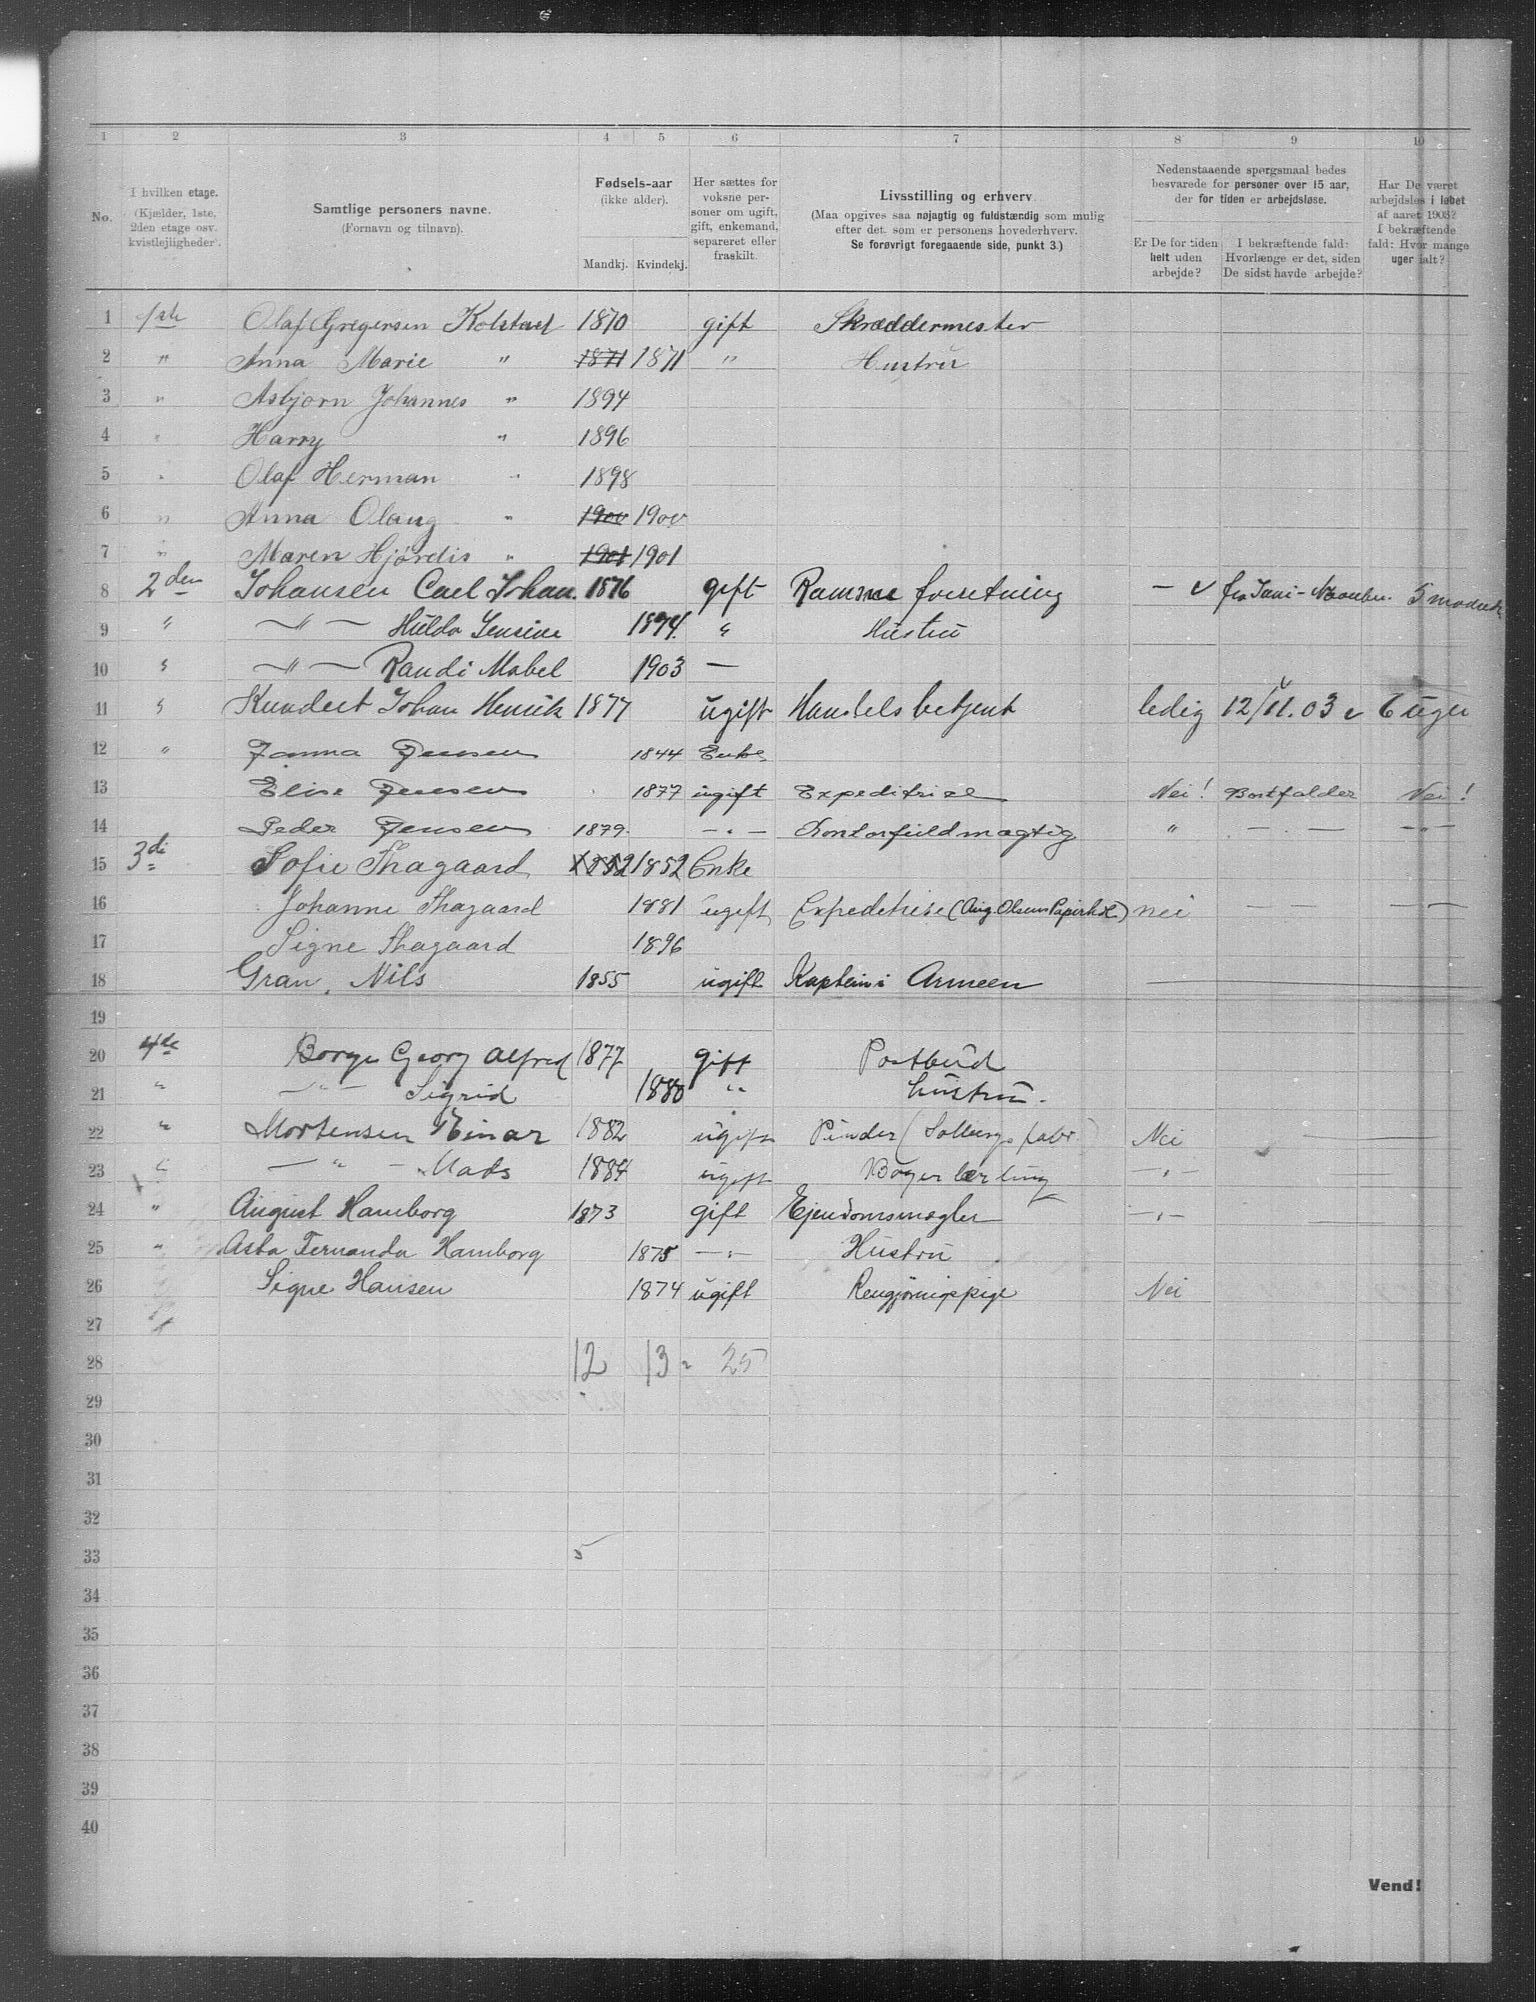 1 2 3 4 5 6 7 8 9 10
No. I hvilken etage. (Kjælder, 1ste, 2den etage osv. kvistleiligheder). Samtlige personers navne. (Fornavn og tilnavn). Fødsels-aar (ikke alder). Mandkj. Kvindekj. Her sættes for voksne personer om ugift, gift, enkemand, separeret eller fraskilt. Livsstilling og erhverv. (Maa opgives saa nøjagtig og fuldstændig som mulig efter det. som er personens hovederhverv. Se forøvrigt foregaaende side, punkt 3.) Nedenstaaende spørgsmaal bedes besvarede for personer over 15 aar, der for tiden er arbejdsløse. Er De for tiden helt uden arbejde? I bekræftende fald: Hvorlænge er det, siden De sidst havde arbejde? Har De været arbejdsløs i løbet af aaret 1903? I bekræftende fald: Hvor mange uger ialt?
1 1ste Olaf Gregersen Kolstad 1870 gift Skræddermester
2 " Anna Marie " 1871 1871 " Hustru
3 " Asbjørn Johannes " 1894
4 " Harry " 1896
5 " Olaf Herman " 1898
6 " Anna Olaug " 1900 1900
7 " Maren Hjørdis " 1901 1901
8 2den Johansen Carl Johan. 1876 gift Ramme forretning — ✓ fra Juni - November. 5 
9 " —"— Hulda Jensine 1874. " Hustru
10 " —"— Randi Mabel 1903 —
11 " Kundert Johan Henrik 1877 ugift Handelsbetjent ledig 12/11. 03 ✓ 6 uger
12 " Jensen 1844 Enke
13 Elise Jensen 1877 ugift Expeditrise Nei! Bortfalder Nei!
14 Peder Jensen 1879. —"— Kontorfuldmægtig " — " — —"—
15 3di Sofie Thagaard 1852 1852 Enke
16 Johanne Thagaard 1881 ugift Expeditrise (Aug. Olsens Papirh.) nei — — —
17 Signe Thagaard 1896
18 Gran, Nils 1855 ugift Kaptein i Armeen
19
20 4de Borge Georg Alfred 1877 gift Postbud
21 " —"— Sigrid 1880 " hustru.
22 " Mortensen Einar 1882 ugift (Solbergs fabr.) Nei
23 " —"— Mads 1884 ugift Bager lærling —"—
24 " August Hamborg 1873 gift Ejendomsmægler —"—
25 " Asta Fernanda Hamborg 1875 —"— Hustru
26 Signe Hansen 1874 ugift Rengjøringspige Nei
27
28 12 13 = 25
29
30
31
32
33 5
34
35
36
37
38
39
40
Vend!